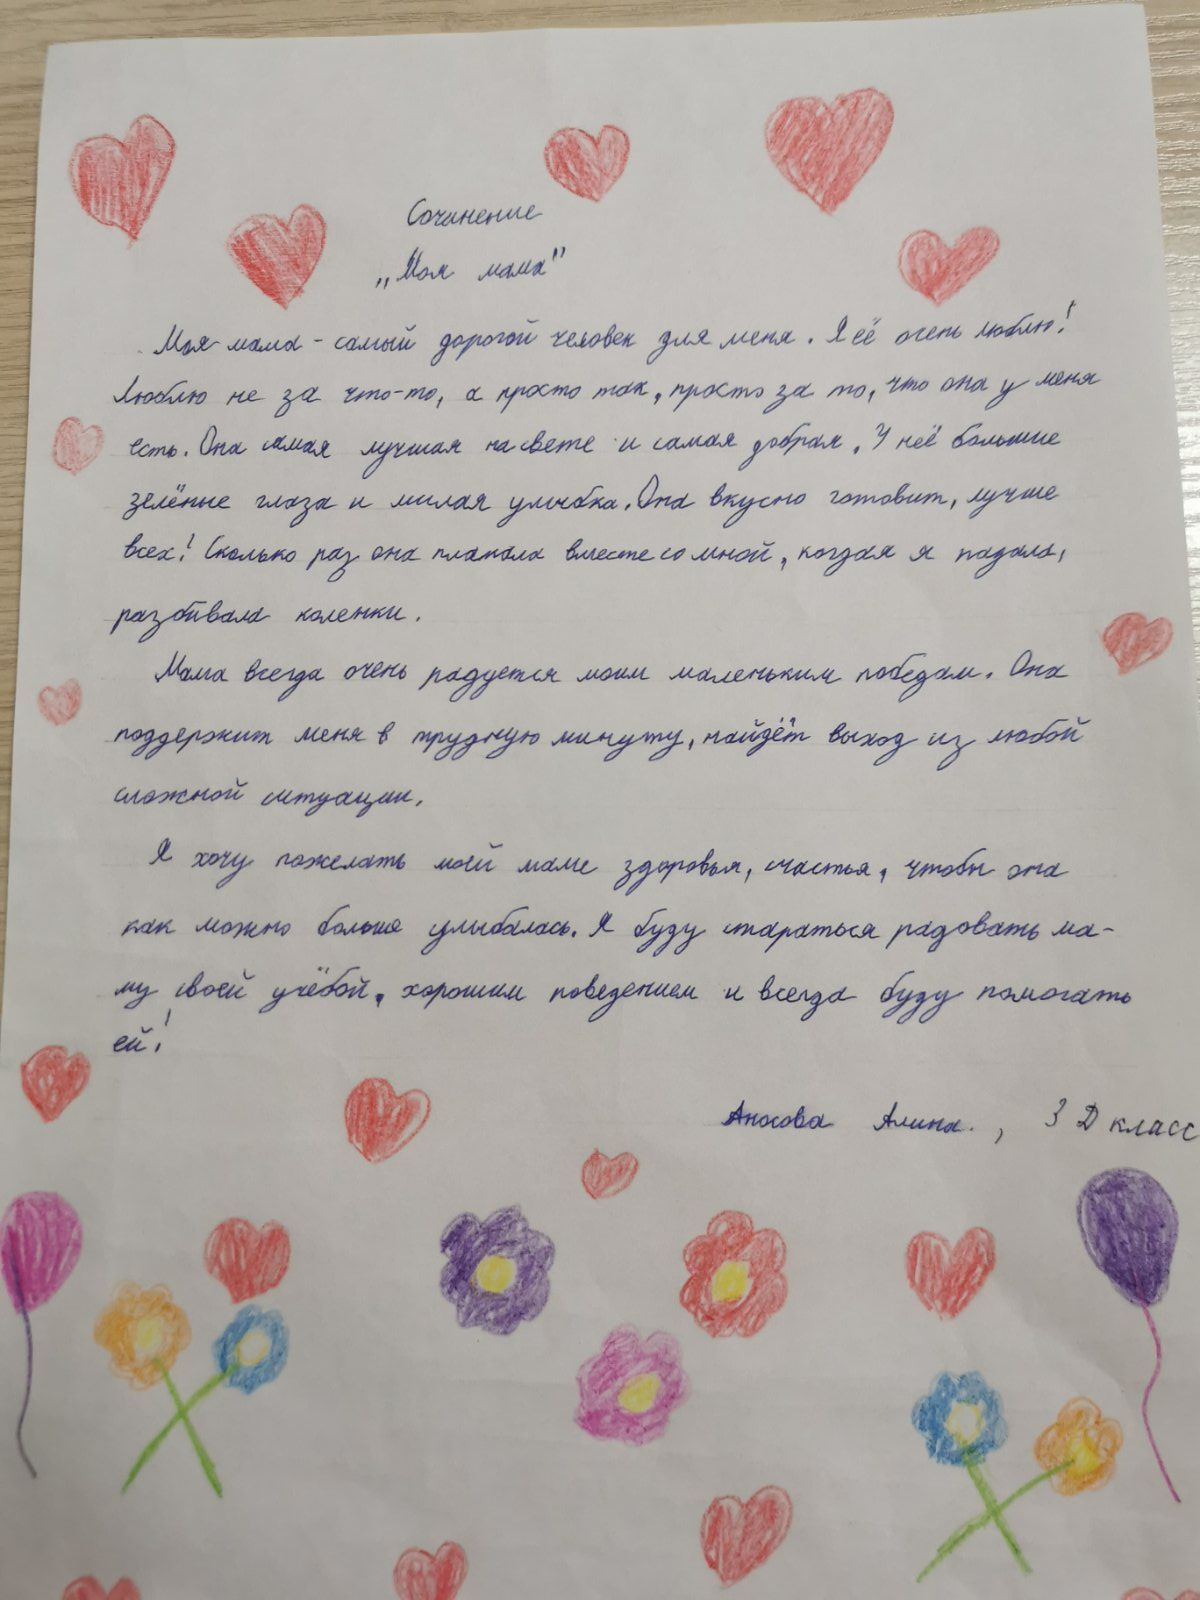 Сочинение
„Моя мама"
Моя мама - самый дорогой человек для меня. Я её очень люблю!
Люблю не за что-то, а просто так, просто за то, что она у меня
есть. Она самая лучшая на свете и самая добрая. У неё большие
зелёные глаза и милая улыбка. Она вкусно готовит, лучше
всех! Сколько раз она плакала вместе со мной, когдая я падала,
разбивала коленки.
Мама всегда очень радуется моим маленьким победам. Она
поддержит меня в трудную минуту, найдёт выход из любой
сложной ситуации.
Я хочу пожелать моей маме здоровья, счастья, чтобы она
как можно больше улыбалась. Я буду стараться радовать ма-
му своей учёбой, хорошим поведением и всегда буду помогать
ей!
Аносова Алина., 3 Д класс